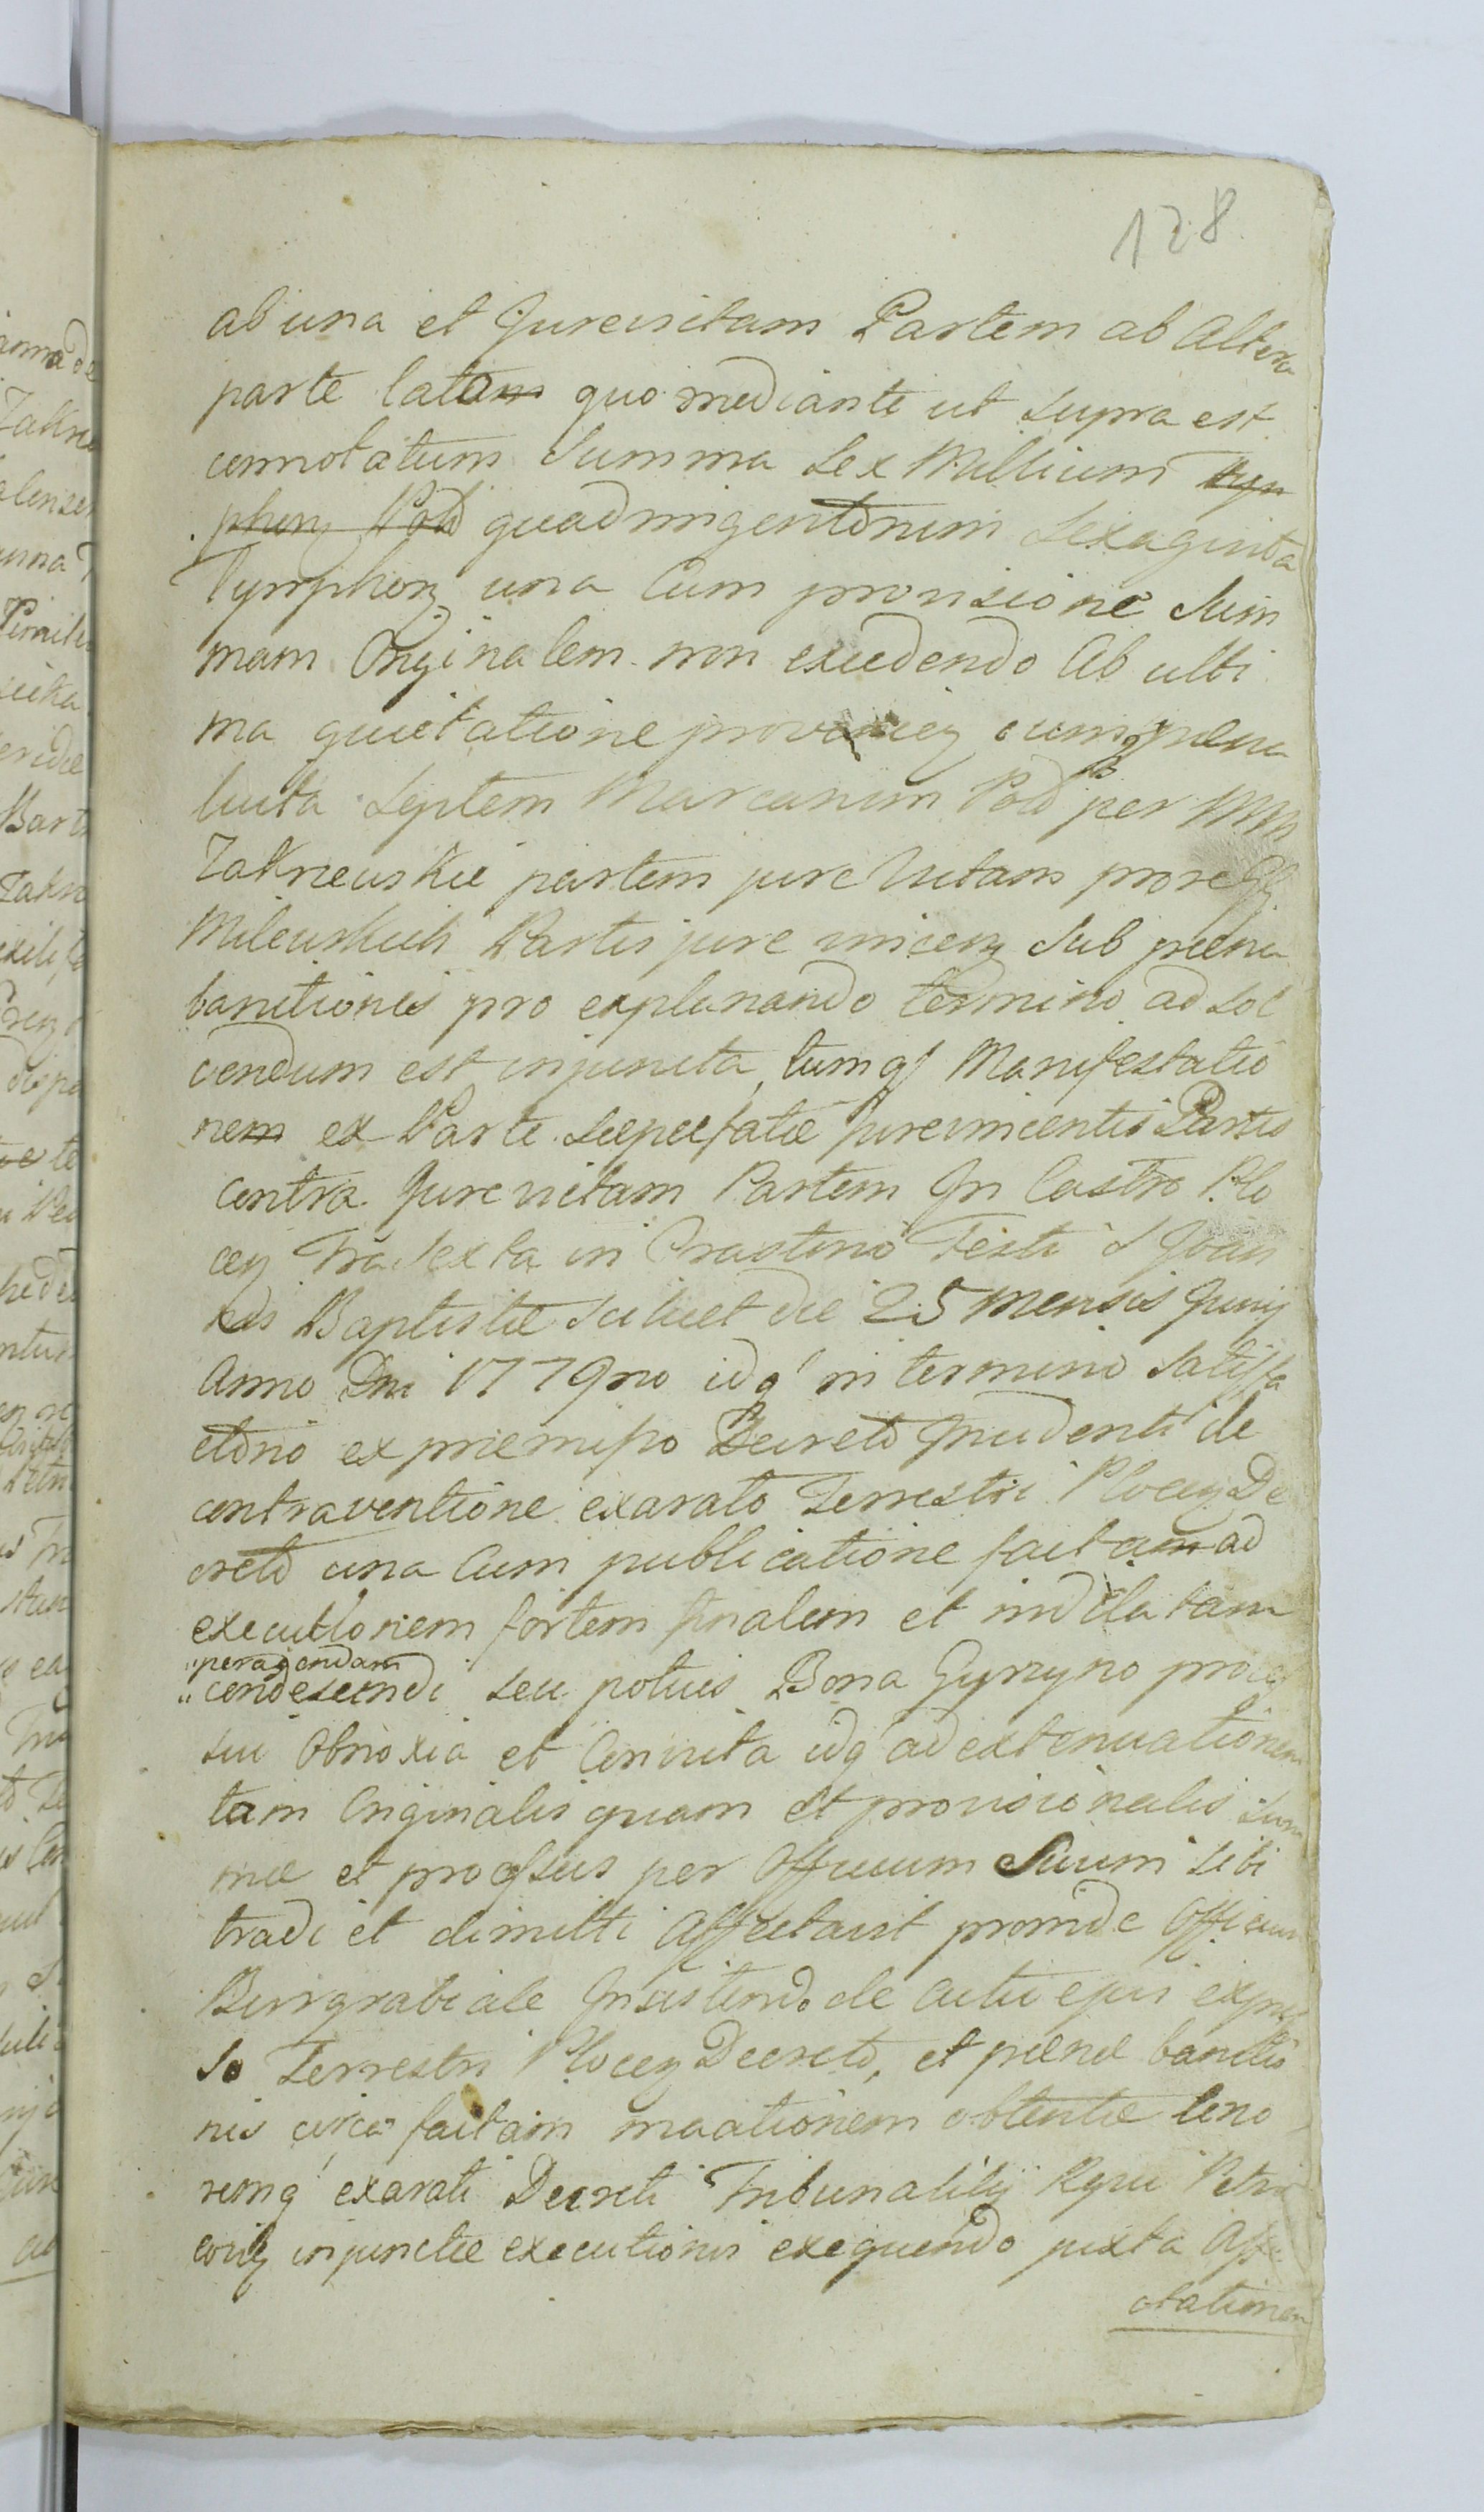 128
ab una et Jurevictam Partem ab Altera
parte latam quo mediante ut supra est
connotatum Summa Sex Millium tyn
phorz Pold quadringentorum Sexaginta
Tymphorz una cum provisione Sum
mam Originalem non excedendo ab ulti
ma quietatione provenien cumq poena
lucta Septem Marcarum Pold per MM
Zakrzewskie partem jure victam pro
Milewskich Partis jure vincenz Sub poena
banitionis pro explanando termino ad sol
vendum est injuncta, tumq Manifestatio
nem ex Parte Saepefatae Jurevincentis Partis
contra Jurevictam Partem In Castro Plo
cen in Crastino Festi S Joan
nis Baptistae Scilicet die 25 mensis Junij
Anno Dni 1779no idq' in termino Satisfa
ctorio ex praemisso Decreto Incidenti de
contraventione exarato Terrestri Plocen De
creto una cum publicatione factam ad
executionem fortem finalem et indilatam
"peragendam
"condescendi seu potius Bona Gyrzyno proces
sui obnoxia et convicta idq' ad extenuationem
tam Originalis quam et provisionalis Sum
mae et processus per Officium Suum sibi
tradi et dimitti affectavit proinde Officium
Burgrabiale Insistendo de actu ejus expres
so Terrestri Plocen Decreto, et poenae banitio
nis circa factam obtentae teno
remq' exarati Decreti Tribunalitij Regni Petri
corien injunctae executionis exequendo juxta Affe
ctationem